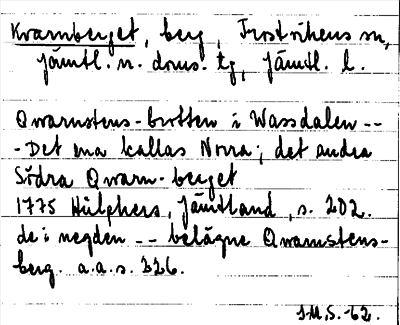 Kvarnberget, berg, Frostvikens sn,
Jämtl. n. doms. tg, Jämtl. l.
Qvarnstens-brotten i Wassdalen --
- Det ena kallas Norra; det andra
Södra Qwarn-berget
1775 Hülphers, Jämtland, s. 202.
de i negden -- belägne Qwarnstens-
berg. a.a.s. 226.
J.M.S.-62.